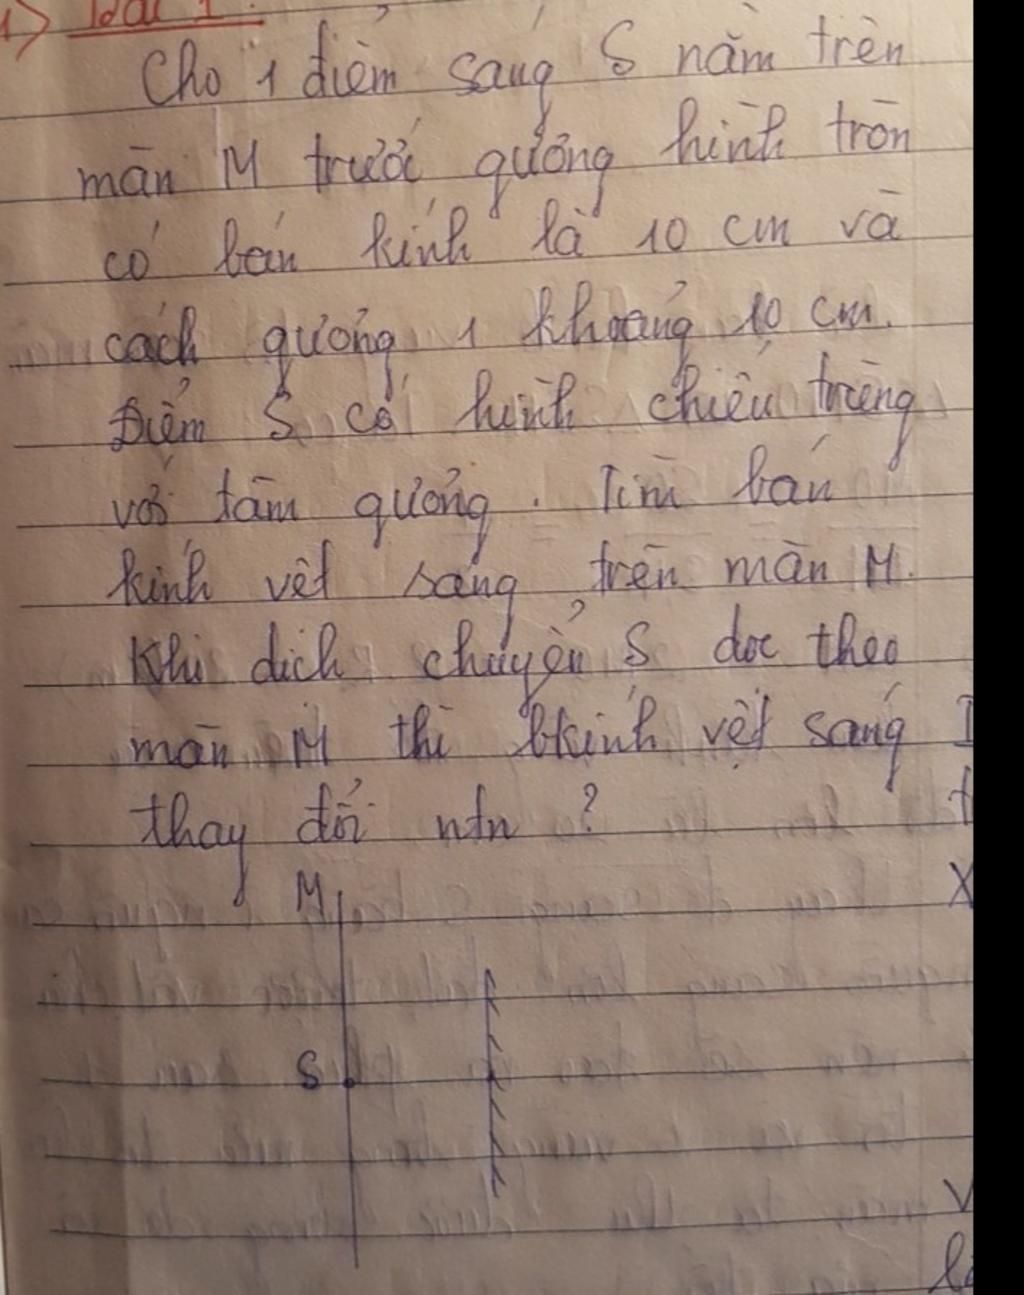 1) Bài 1
Cho 1 điểm sáng S nằm trên
màn M trước gương hình tròn
có bán kính là 10 cm và
cách gương 1 khoảng 10 cm.
Điểm S có hình chiếu trùng
với tâm gương. Tìm bán
kính vệt sáng trên màn M.
Khi dịch chuyển S dọc theo
màn M thì bkính vệt sáng
thay đổi ntn ?
M
S